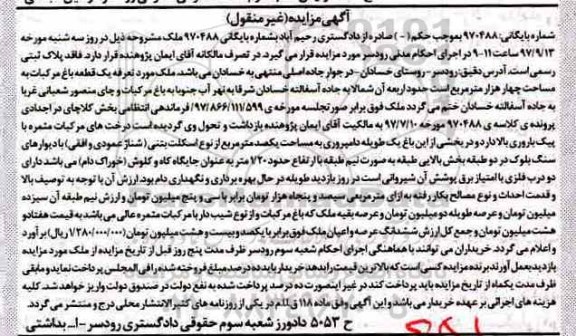 آگهی مزایده (غیر منقول)
شماره بایگانی: ۹۷۰۴۸۸ بموجب حکم (-) صادره از دادگستری رحیم آباد بشماره بایگانی ۹۷۰۴۸۸ ملک مشروحه ذیل در روز سه شنبه مورخه
۹۷/۹/۱۳ ساعت ۱۱-۹ در اجرای احکام مدنی رودسر مورد مزایده قرار می گیرد در تصرف مالکانه آقای ایمان پژوهنده قرار دارد. فاقد پلاک ثبتی
رسمی است. آدرس دقیق: رودسر-روستای خسادان- در جوار جاده اصلی منتهی به خسادان می باشد، ملک مورد تعرفه یک قطعه باغ مرکبات به
مساحت چهار هزار مترمربع است حدود اربعه آن شمالا به جاده آسفالته خسادان شرقا به نهر آب جنوبا به باغ مرکبات و چای منصور شعبانی غربا
به جاده آسفالته خسادان ختم می گردد ملک فوق برابر صورتجلسه مورخه ی ۹۷/۸۶۶/۱۱۷/۵۹۹ فرماندهی انتظامی بخش کلاچای در اجدادی
پرونده ی کلاسه ی ۹۷۰۴۸۸ مورخه ۹۷/۷/۱۰ به مالکیت آقای ایمان پژوهنده بازداشت و تحویل وی گردیده است درخت های مرکبات مثمره با
پیک باروری بالا دارد و در بخشی از این باغ یک طویله دامپروری به مساحت یکصد مترمربع از نوع اسکلت بتنی (شناژ عمودی و افقی) با دیوارهای
سنگ بلوک در دو طبقه بخش بالایی طبقه به صورت نیم طبقه با ارتفاع حدود ۱/۲۰ متر به عنوان جایگاه کاه و کلوش (خوراک دام) می باشد دارای
دو درب فلزی با امتیاز برق پوشش آن شیروانی است در روز بازدید طویله در حال بهره برداری و نگهداری دام بود ارزش آن با توجه به توصیف بالا
و قدمت احداث و نوع مصالح بکار رفته به ازای متر مربعی سیصد و پنجاه هزار تومان برابر با سی و پنج میلیون تومان و ارزش نیم طبقه آن سیزده
میلیون تومان و عرصه طویله دو میلیون تومان و عرصه بقیه ملک که باغ مرکبات و از نوع شیب دار با مرکبات مثمره عالی می باشد به قیمت هفتاد و
هشت میلیون تومان و جمع کل ارزش ششدانگ عرصه و اعیان ملک فوق برابر با یکصد و بیست و هشت میلیون تومان (۱/۲۸۰/۰۰۰/۰۰۰ ریال) برآورد
و اعلام می گردد. خریداران می توانند با هماهنگی اجرای احکام شعبه سوم رودسر ظرف مدت پنج روز قبل از تاریخ مزایده از ملک مورد مزایده
بازدید بعمل آورند برنده مزایده کسی است که بالاترین قیمت را بدهد خریدار باید ده درصد مبلغ فروخته شده را فی المجلس پرداخت نماید و مابقی
ظرف مدت یکماه از تاریخ مزایده باید پرداخت کند در غیر اینصورت ده درصد پرداخت شده به نفع دولت در صندوق دولت واریز خواهد شد. کلیه
هزینه های اجرائی بر عهده خریدار می باشد و این آگهی وفق ماده ۱۱۸ ق.ا.م در یکی از روزنامه های کثیر الانتشار محلی درج و منتشر می گردد.
ح ۵۰۵۳ دادورز شعبه سوم حقوقی دادگستری رودسر -ا... بداشتی